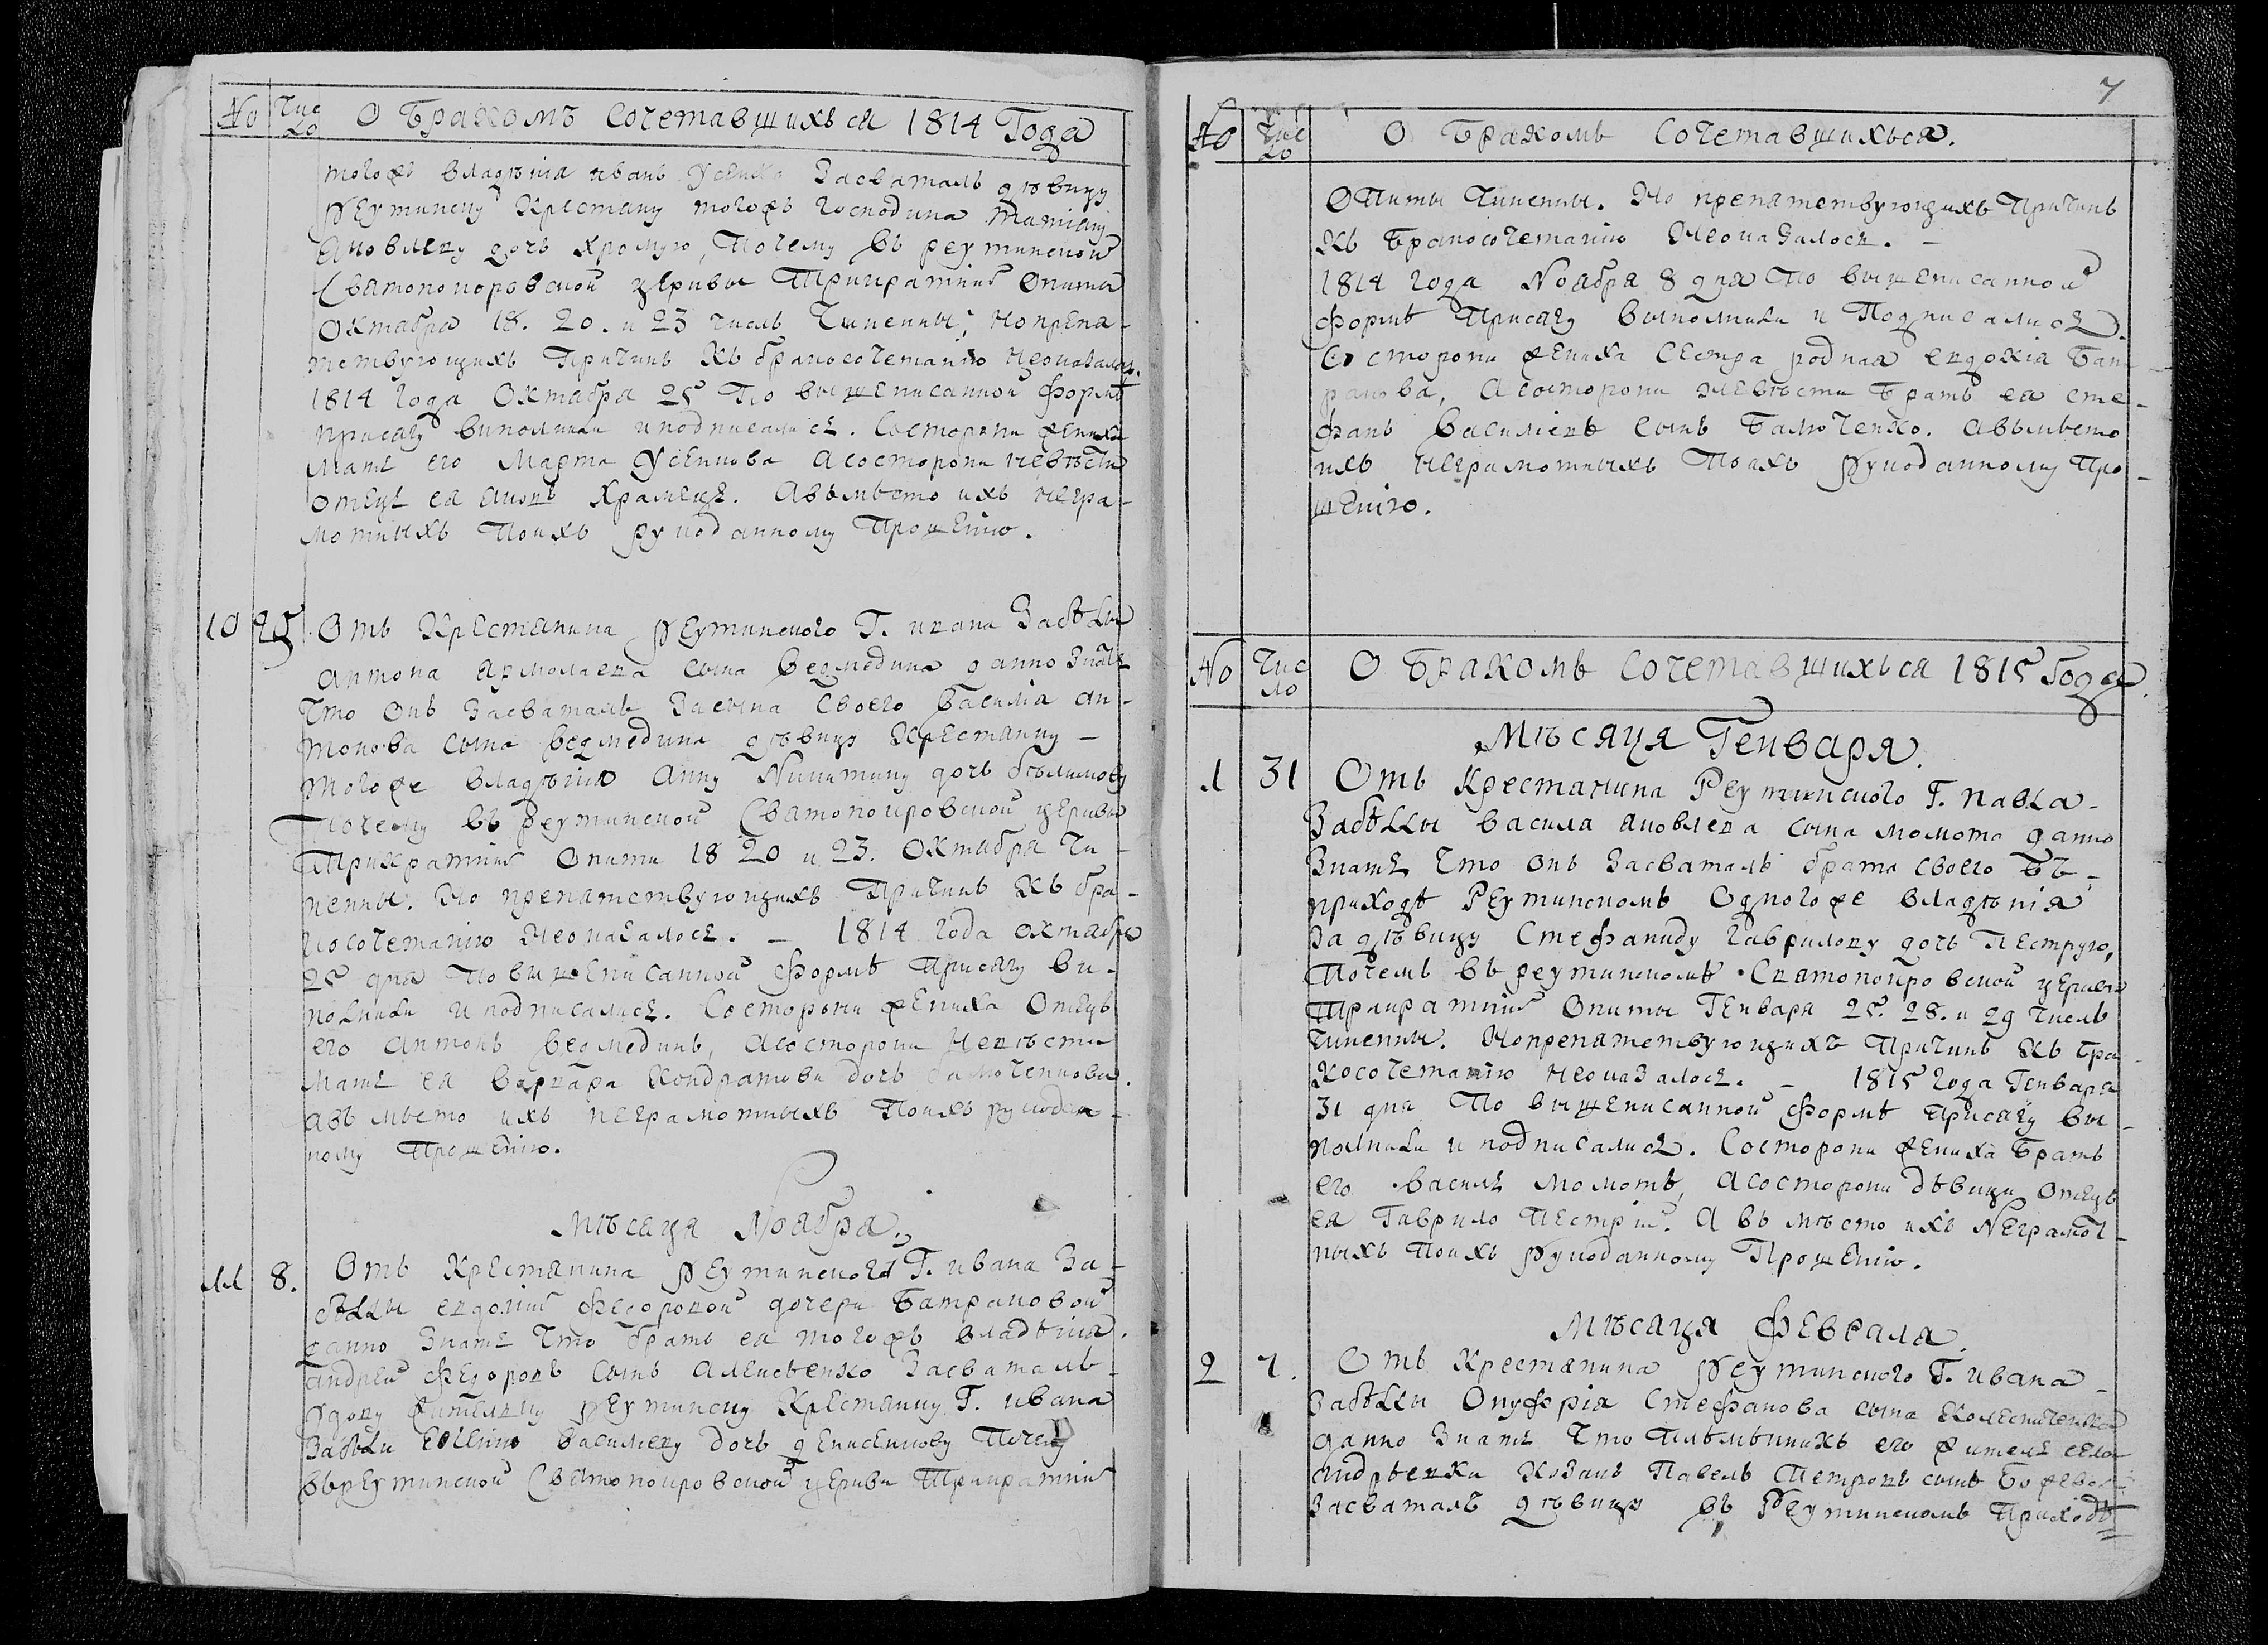 № Число О Бракомъ Сочетавшихься 1814 Года
тогожъ владѣнія иванъ Усенко Засваталъ дѣвицу
Реутинску Крестянку тогожъ господина Татіану
Яковлеву дочь хромую, Почему въ реутинской
Святопокровской церквы Трикратніе Опиты
Октабра 18. 20. и 23 числъ Чиненны, но препа-
тствующихъ Причинъ Къ бракосочетанію Неоказалось.
1814 года Октабра 25 По вышеписанной формѣ
присягу виполнили иподписались. Состороны жениха
Мать его Марта Усенкова Асостороны невѣсти
Отецъ ея Яковъ Храмецъ. Авъмѣсто ихъ негра-
мотныхъ Поихъ рукоданному Прошенію.
10 25 Отъ Крестянина Реутинского Г. ивана Забѣлы
антона ярмолаева сына Ведмедина данно Знать
Что онъ Засваталъ Засына Своего Василія ан-
тонова сына Ведмедина дѣвицу Крестянку
тогоже владѣнія Анну Никитину дочь бѣликову
Почему въ реутинской Святопокровской церкви
Трикратніе Опити 18 20 и 23. Октабра Чи-
ненны. Но препатствующихъ Причинъ Къ бра-
косочетанію Неоказалось. - 1814 года октабра
25 дня По вышеписанной формѣ Присягу ви-
полнили и подписались. Состороны жениха Отецъ
его антонъ Ведмединъ, Асостороны Невѣсти
Мать ея варвара Кондратова дочь
авъмѣсто ихъ неграмотныхъ Поихъ рукодан-
ному Прошенію.
Мѣсяця Ноабра.
11 8. Отъ Крестянина Реутинского Г. ивана За-
бѣлы евдокіи федоровой дочери Батрановой
данно Знать Что братъ ея тогожъ владѣнія.
андрей федоровъ сынъ Алексѣенко Засваталъ
вдову жителку реутинску Крестянку Г. ивана
Забѣли Евгению Василеву дочь денисенкову Почему
въреутинской Светопокровской церкви Трикратніе
7
№ Число О Бракомъ Сочетавшихься.
Опиты Чиненны. Но препатствующихъ Причинъ
Къ Бракосочетанію Неоказалось. -
1814 года Ноабра 8 дня По вышеписанной
формѣ Присягу выполнили и Подписались.
Состорони жениха Сестра родная евдокія Бат
ранова, Асосторони Невѣсти Братъ ея сте-
фанъ Василіевъ сынъ Балюченко. авъмѣсто
ихъ Неграмотныхъ Поихъ Рукоданному Про-
шенію.
№ Число О Бракомъ Сочетавшихься 1815 Года.
Мѣсяця Генваря.
1 31 Отъ Крестанина Реутинского Г. павла-
Забѣлы василя яковлева сына момота данно
Знать Что онъ Засваталъ брата своего Въ-
приходѣ Реутинскомъ Одногоже владѣнія
За дѣвицу Стефаниду гаврилову дочь Пеструю,
Почемъ въ реутинскомъ Святопокровской церкви
Трикратніе Опиты Генваря 25. 28. и 29 числъ
Чиненны. Нопрепатствующихъ Причинъ Къ бра-
Косочетанію Неоказалось. - 1815 года Генваря
31 дня По вышеписанной формѣ Присягу вы-
полнили и подписались. Состорони жениха Братъ
его василь момотъ, Асосторони дѣвицы Отецъ
ея Гаврило Пестрій. А въмѣсто ихъ Неграмот-
ныхъ Поихъ Рукоданному Прошенію.
Мѣсяця Февраля
2 7. Отъ Крестянина Реутинского Г. ивана-
Забѣлы Онуфрія Стефанова сына Колесниченка
данно Знать Что Племѣникъ его житель села
андрѣевки Козакъ Павелъ Петровъ сынъ
Засваталъ дѣвицу въ Реутинскомъ Приходѣ